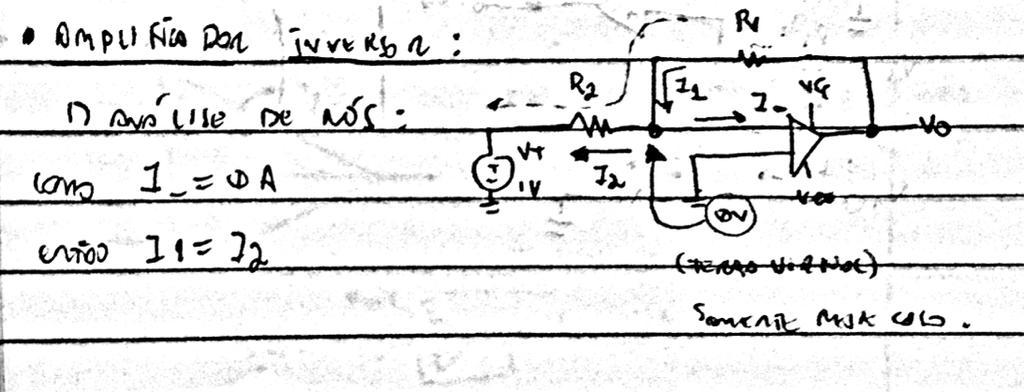 • AMPLIFICADOR INVERSOR:
1) ANÁLISE DE NÓS:
COMO I_ = 0 A
ENTÃO I1 = I2
R1
R2
I1
I_
Vo
I2
1V
0V
(TERRA VIRTUAL)
SOMENTE NESTE CASO.